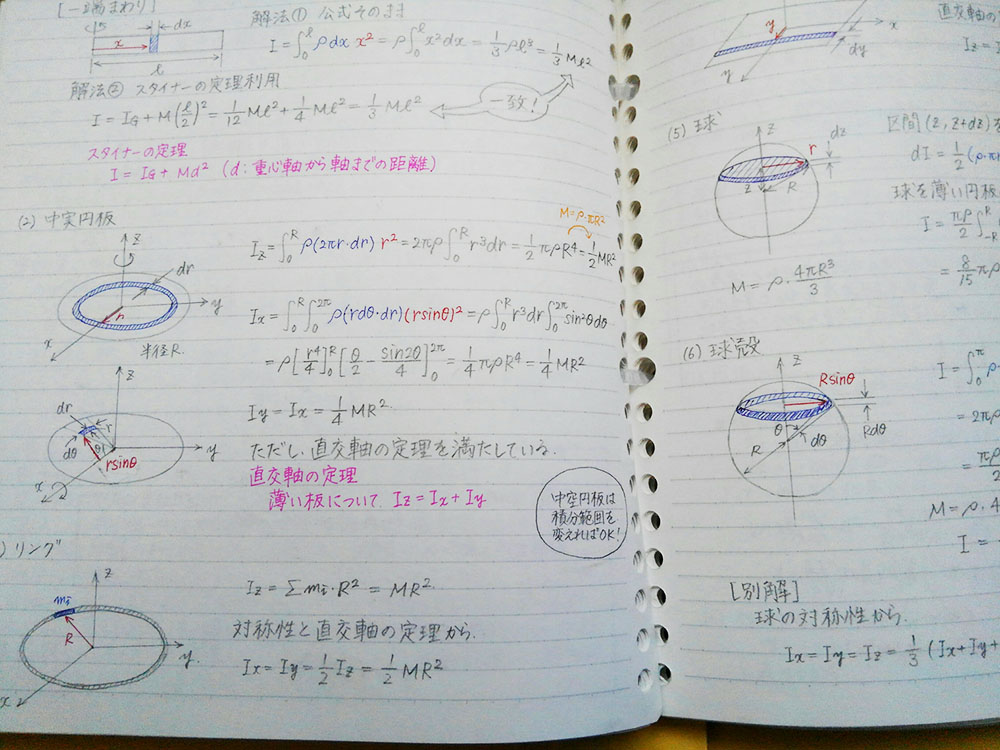 [一端まわり]
dx
x
l
解法① 公式そのまま
I = ∫₀ˡ ρdx x² = ρ∫₀ˡ x²dx = 1/3 ρl³ = 1/3 Ml²
解法② スタイナーの定理利用
I = IG + M(l/2)² = 1/12 Ml² + 1/4 Ml² = 1/3 Ml²
一致!
スタイナーの定理
I = IG + Md² (d:重心軸から軸までの距離)
(2) 中実円板
z
dr
y
r
x
半径R.
M=ρ·πR²
Iz = ∫₀ᴿ ρ(2πr·dr) r² = 2πρ∫₀ᴿ r³dr = 1/2 πρR⁴ = 1/2 MR²
Ix = ∫₀ᴿ∫₀²π ρ(rdθ·dr)(rsinθ)² = ρ∫₀ᴿ r³dr∫₀²π sin²θdθ
= ρ[r⁴/4]₀ᴿ[θ/2 - sin2θ/4]₀²π = 1/4 πρR⁴ = 1/4 MR²
Iy = Ix = 1/4 MR².
ただし、直交軸の定理を満たしている.
直交軸の定理
薄い板について Iz = Ix + Iy
z
dr
r
dθ
θ
rsinθ
y
x
中空円板は
積分範囲を
変えればOK!
) リング
z
mi
R
y.
x
Iz = Σmi·R² = MR².
対称性と直交軸の定理から.
Ix = Iy = 1/2 Iz = 1/2 MR²
x
y
dy
y
直交軸の
Iz =
(5) 球
z
dz
r
z
R
M = ρ·4πR³/3
区間(z, z+dz)を
dI = 1/2 (ρ·πr
球を薄い円板
I = πρ/2 ∫-R R
= 8/15 πρ
(6) 球殻
z
Rsinθ
θ
dθ
Rdθ
R
I = ∫₀π ρ·
= 2πρ
= πρ/2
M = ρ·4
I =
[別解]
球の対称性から.
Ix = Iy = Iz = 1/3 (Ix+Iy+